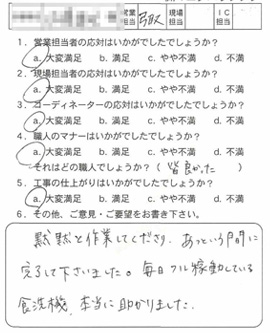 営業担当 弓取 現場担当 IC担当
1. 営業担当者の応対はいかがでしたでしょうか?
a. 大変満足 b. 満足 c. やや不満 d. 不満
2. 現場担当者の応対はいかがでしたでしょうか?
a. 大変満足 b. 満足 c. やや不満 d. 不満
3. コーディネーターの応対はいかがでしたでしょうか?
a. 大変満足 b. 満足 c. やや不満 d. 不満
4. 職人のマナーはいかがでしたでしょうか?
a. 大変満足 b. 満足 c. やや不満 d. 不満
それはどの職人でしょうか?( 皆良かった )
5. 工事の仕上がりはいかがでしたでしょうか?
a. 大変満足 b. 満足 c. やや不満 d. 不満
6. その他、ご意見・ご要望をお書き下さい。
黙黙と作業してくださり、あっという間に
完了して下さいました。毎日フル稼動している
食洗機、本当に助かりました。